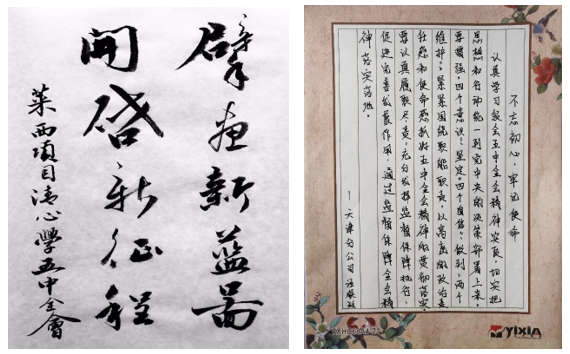 擘画新蓝圖
開啓新征程
莱西項目清心學五中全會
不忘初心，牢记使命
认真学习党会五中全会精神实质，切实把
思想和行动统一到党中央的决策部署上来，
要增强“四个意识”、坚定“四个自信”、做到“两个
维护”；紧紧围绕职能职责，以高度的政治责
任感和使命感抓好五中全会精神的贯彻落实，
要认真履职尽责，充分发挥监督保障执行、
促进完善发展作用，通过监督保障全会精
神落实落地。
—天津分公司
YIXIA